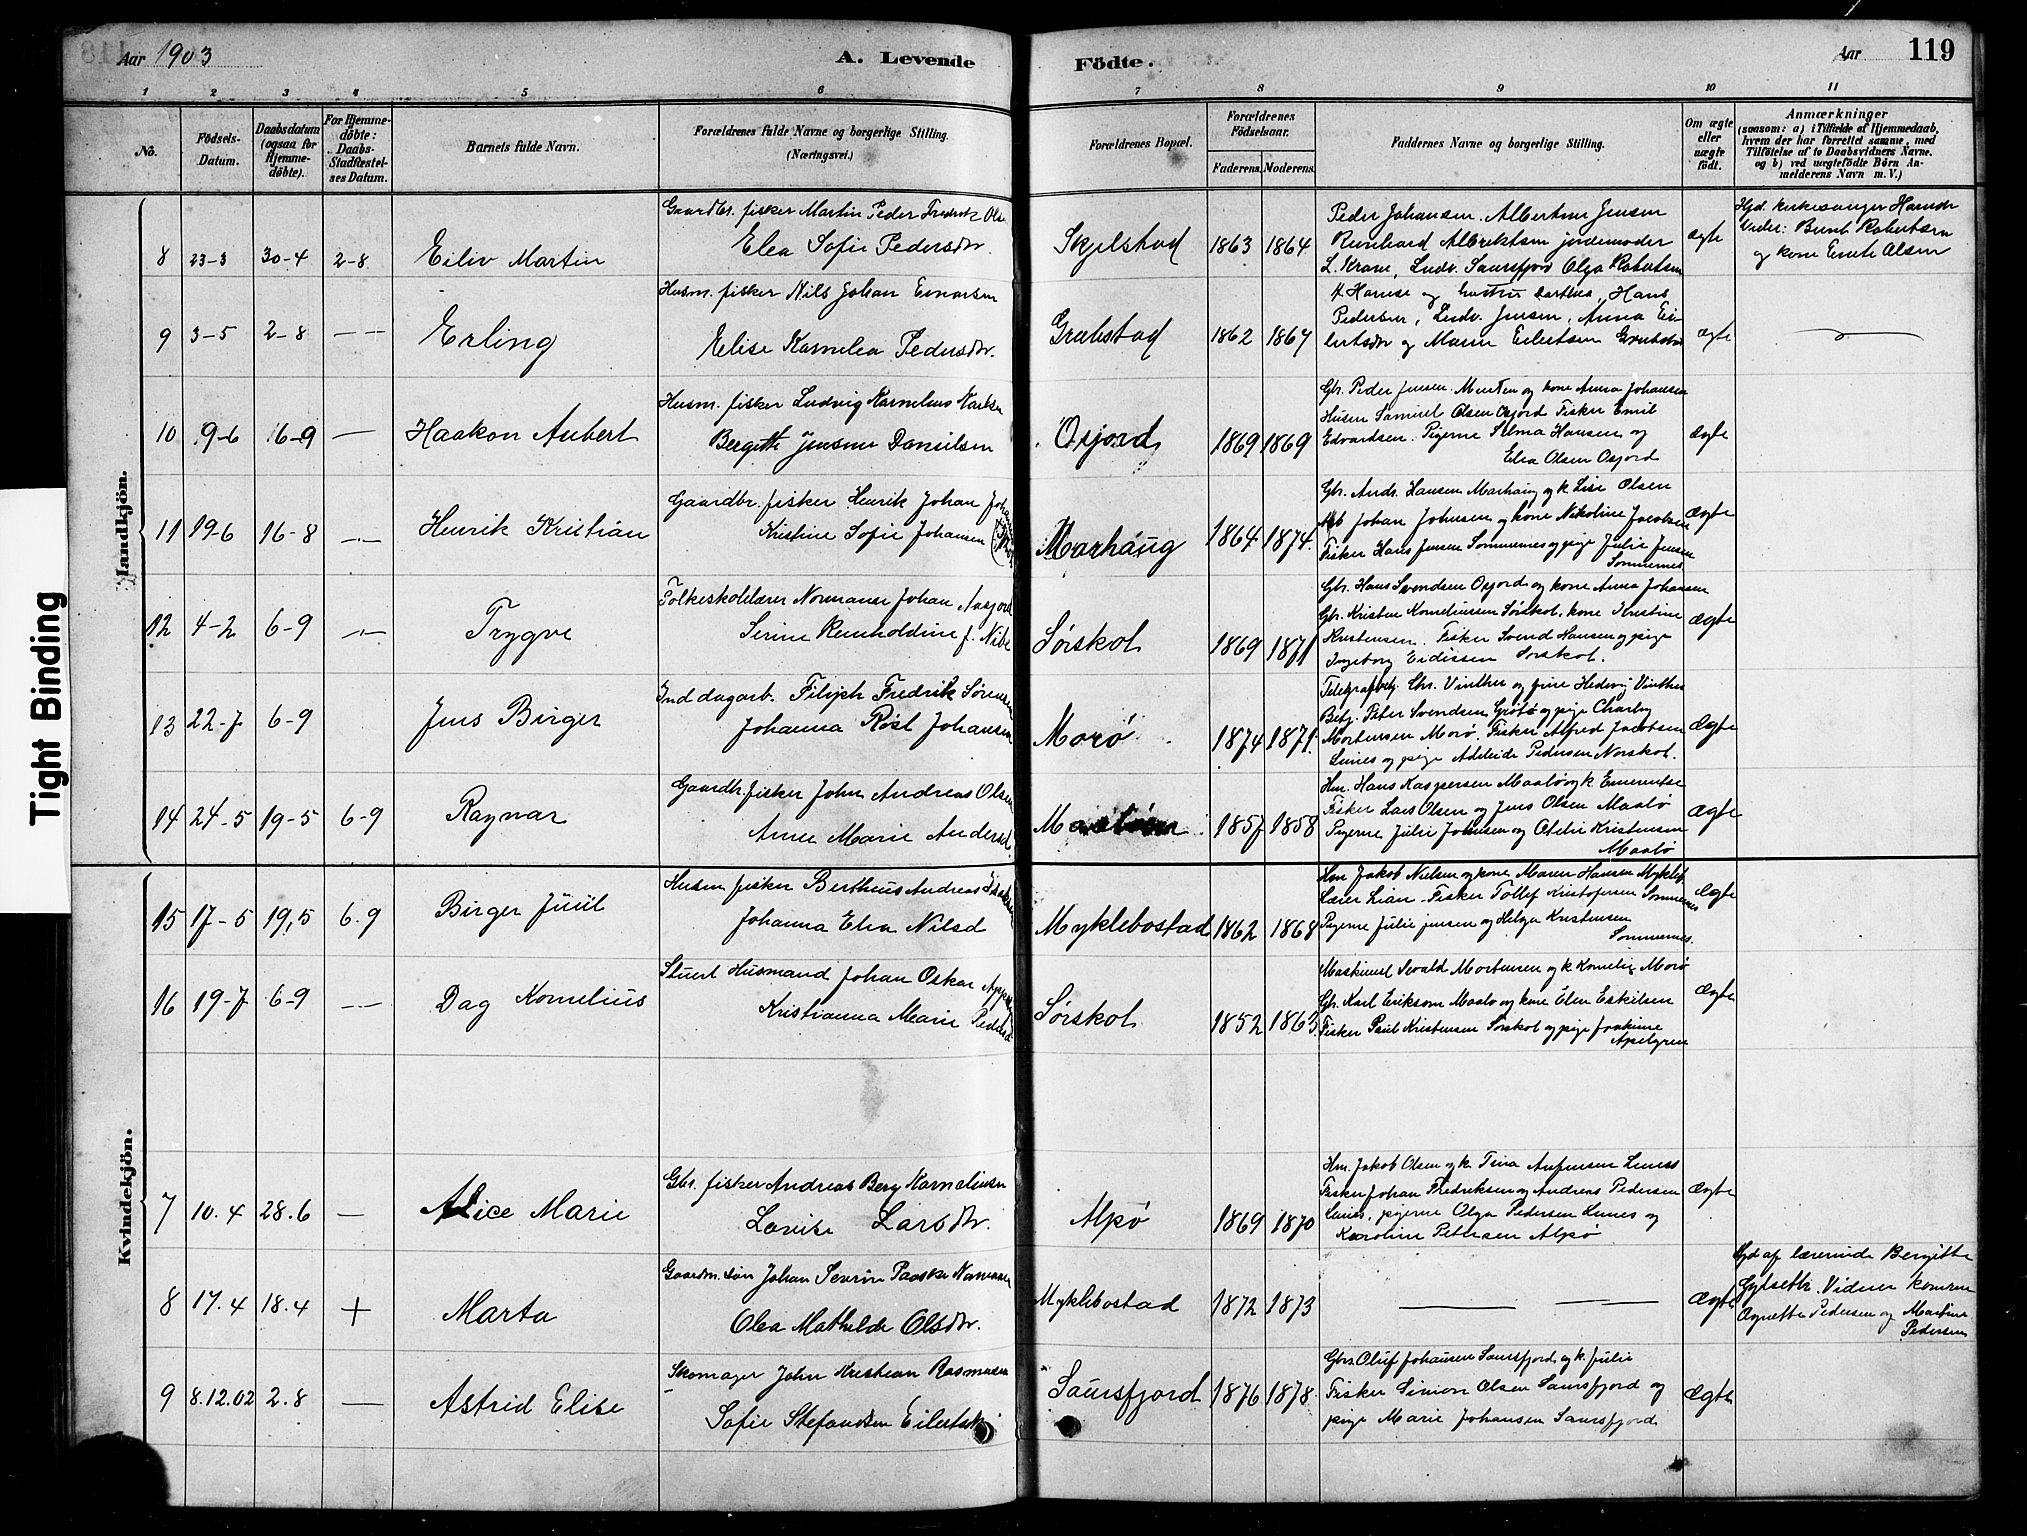 Aar 1903
A. Levende
Födte.
Aar
119
1 2 3 4 5 6 7 8 9 10 11
No.
Födsels-
Datum.
Daabsdatum
(ogsaa for
Hjemme-
döbte).
For Hjemme-
döbte:
Daabs-
Stadfæstel-
ses Datum.
Barnets fulde Navn.
Forældrenes fulde Navne og borgerlige Stilling.
(Næringsvei.)
Forældrenes Bopæl.
Forældrenes
Födselsaar.
Faderens. Moderens.
Faddernes Navne og borgerlige Stilling.
Om ægte
eller
uægte
födt.
Anmærkninger
(saasom: a) i Tilfælde af Hjemmedaab,
hvem der har forrettet samme, med
Tilföielse af to Daabsvidners Navne.
og b) ved uægtefödte Börn An-
melderens Navn m. V.)
Mandkjön.
8 23-3 30-4 2-8 Eiliv Martin
Gaardbr. fisker Martin Peder Fredrik Ols
Elea Sofie Pedersdtr.
Skjelstad 1863 1864
Peder Johansen. Albertine Jensen
Reinhard Albriktsen jordemoder
L. Krane, Ludv. Saursfjord Olga Robertsen
ægte
Hjd. kirkesanger Hamse
Vidner: Bernt Robertsen
og kone Olsen
9 3-5 2-8 — — Erling
Husm. fisker Nils Johan Einarsen
Elise Kornelea Pedersdtr.
Grøbstad 1862 1867
Hamse og hustru Dorthea, Hans
Pedersen, Ludv. Jensen, Anna Ei-
lertsdtr og Maren Eilertsen
ægte
10 9-6 16-9 — Haakon Aubert
Husm. fisker Ludvig Kornelius
Bergitte Jensine Danielsen
Osjord 1869 1869
Gbr. Peder Jensen. og kone Anna Johansen
Samuel Olsen Osjord Fisker Emil
Edvardsen. Pigerne Selma Hansen og
Elea Olsen Osjord
ægte
11 19-6 16-8 — Henrik Kristian
Gaardbr. fisker Henrik Johan
Kristine Sofie Johansen
Marhaug 1864 1874.
Gbr. Andr. Hansen Marhaug og k. Lise Olsen
Johan Johnsen og kone Nikoline Jacobsen
Fisker Hans Jensen Sommernes og pige Julie Jensen
Sommernes
Ægte
12 4-2 6-9 — Trygve
Folkeskolelærer Normann Johan Aasjord
Serine Reinholdine f. Nibe
Sørskot 1869 1871
Gbr. Hans Svendsen Osjord og kone Anna Johansen
Gbr. Kristen Korneliussen Sørskot, kone
Kristensen. Fisker Svend Hansen og pige
Ingeborg Eidissen Sørskot.
Ægte
13 22-7 6-9 Jens Birger
Ind dagarb. Filiph Fredrik Sørensen
Johanna Rosl Johansen
Morø 1874 1871.
Chr. Vinther og frue Hedevig Vinther
Betj. Peter Svendsen Grøtø og pige
Mortensen Morø. Fisker Alfred Jacobsen
Lunes og pige Adeleide Pedersen Norskot.
Ægte
14 24-5 19-5 6-9 Ragnar
Gaardbr. fisker John Andreas Olsen
Anne Marie Andersd
1857 1858
Hm. Hans Kaspersen Maalø og k. Emerentse
Fisker Lars Olsen og Jens Olsen Maalø
Pigerne Julie Johnsen og Otelie Kristensen
Maalø
Ægte
15 17-5 19,5 6.9 Birger Juul
Husm. fisker Bertheus Andreas
Johanna Elea Nilsd
Myklebostad 1862 1868
Hm Jakob Nielsen og kone Maren Hansen Myklb
Lærer Lian. Fisker Tollef Kristofersen Sommernes
Pigerne Julie Jensen og Helga Kristensen
Sommernes.
Ægte
16 19-7 6-9 — Dag Kornelius
Stuert Husmand Johan Oskar
Kristianna Marie Pedersd
Sørskot 1852 1863.
Maskinist Sevald Mortensen og k Kornelia Morø
Gb. Karl Eriksen Maalø og kone Elen Eskilsen
Fisker Paul Kristensen Sørskot og pige Joakime
Apelgren
Ægte
Kvindekjön.
7 10.4 28.6 — Alice Marie
Gbr. fisker Andreas Berg Korneliussen
Lovise Larsdtr.
Alpø 1869 1870
Hm. Jakob Olsen og k. Tina Anfinsen Lunes
Fisker Johan Fredriksen og Andreas Pedersen
Lunes, pigerne Olga Pedersen Lunes og
Karoline Petersen Alpø
Ægte
8 17.4 18.4 + Marta
Gaardm. søn Johan Severin Paaske Normann
Olea Mathilde Olsdtr.
Myklebostad 1872 1873
— —
Ægte
Hjd af lærerinde Bergitte
Vidner konerne
Agnette Pedersen og Martine
Pedersen
9 8.12.02 2.8 — Astrid Elise
Skomager John Kristian Rasmussen
Sofie Stefandsen
Saursfjord 1876 1878.
Gbr. Oluf Johansen Saursfjord og k. Julie
Fisker Simon Olsen Saursfjord og
pige Marie Johansen Saursfjord
Ægte
Tight Binding